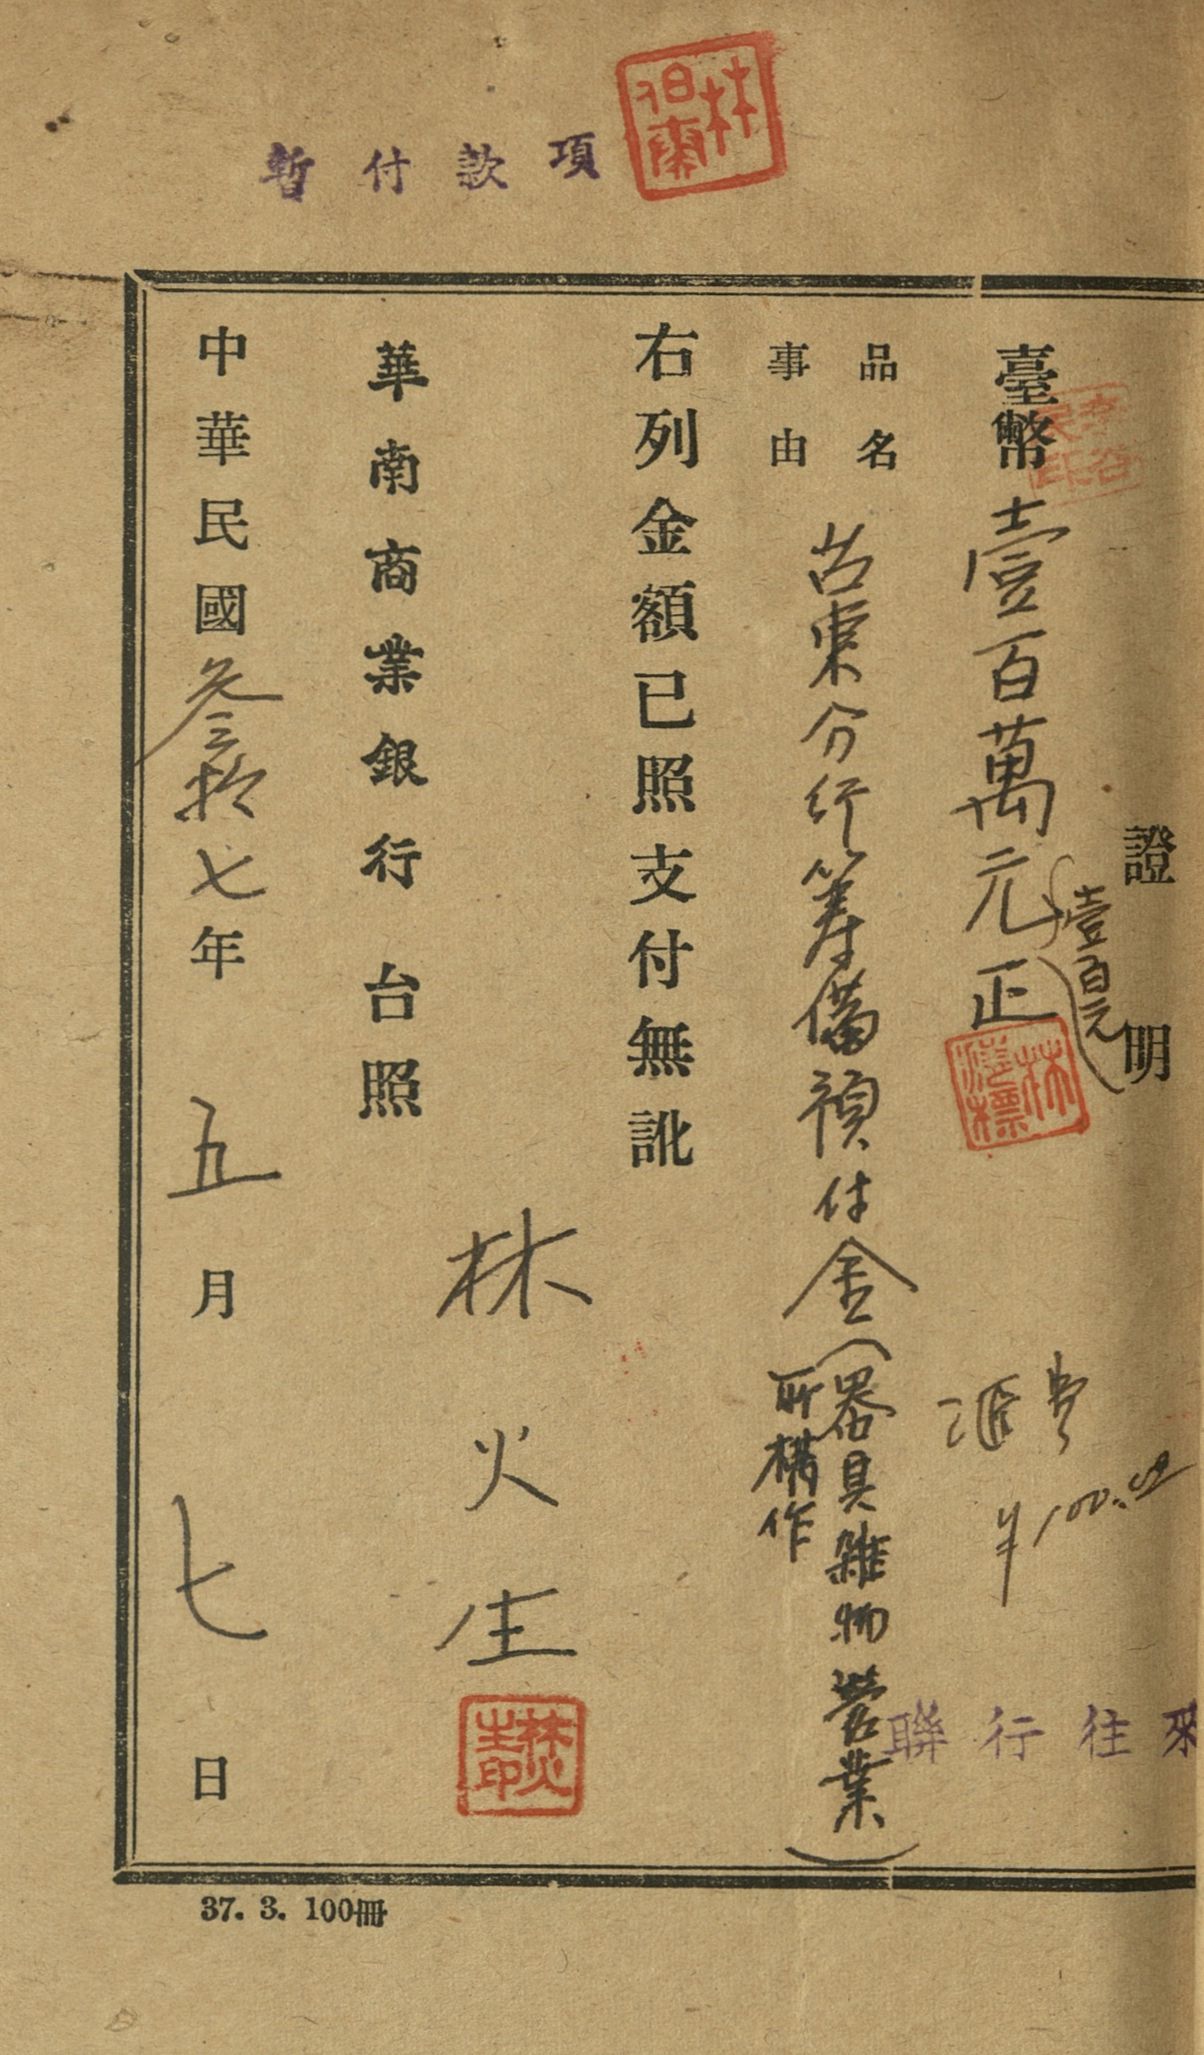 暫付款項
林伯壽
證明
臺幣壹百萬元正
(壹百元)
匯費
¥100.00
品名
事由
台東分行籌備預付金(器具雜物營業
所構作)
右列金額已照支付無訛
林火生
林火生印
華南商業銀行 台照
中華民國叁拾七年五月七日
聯行往來
37. 3. 100冊